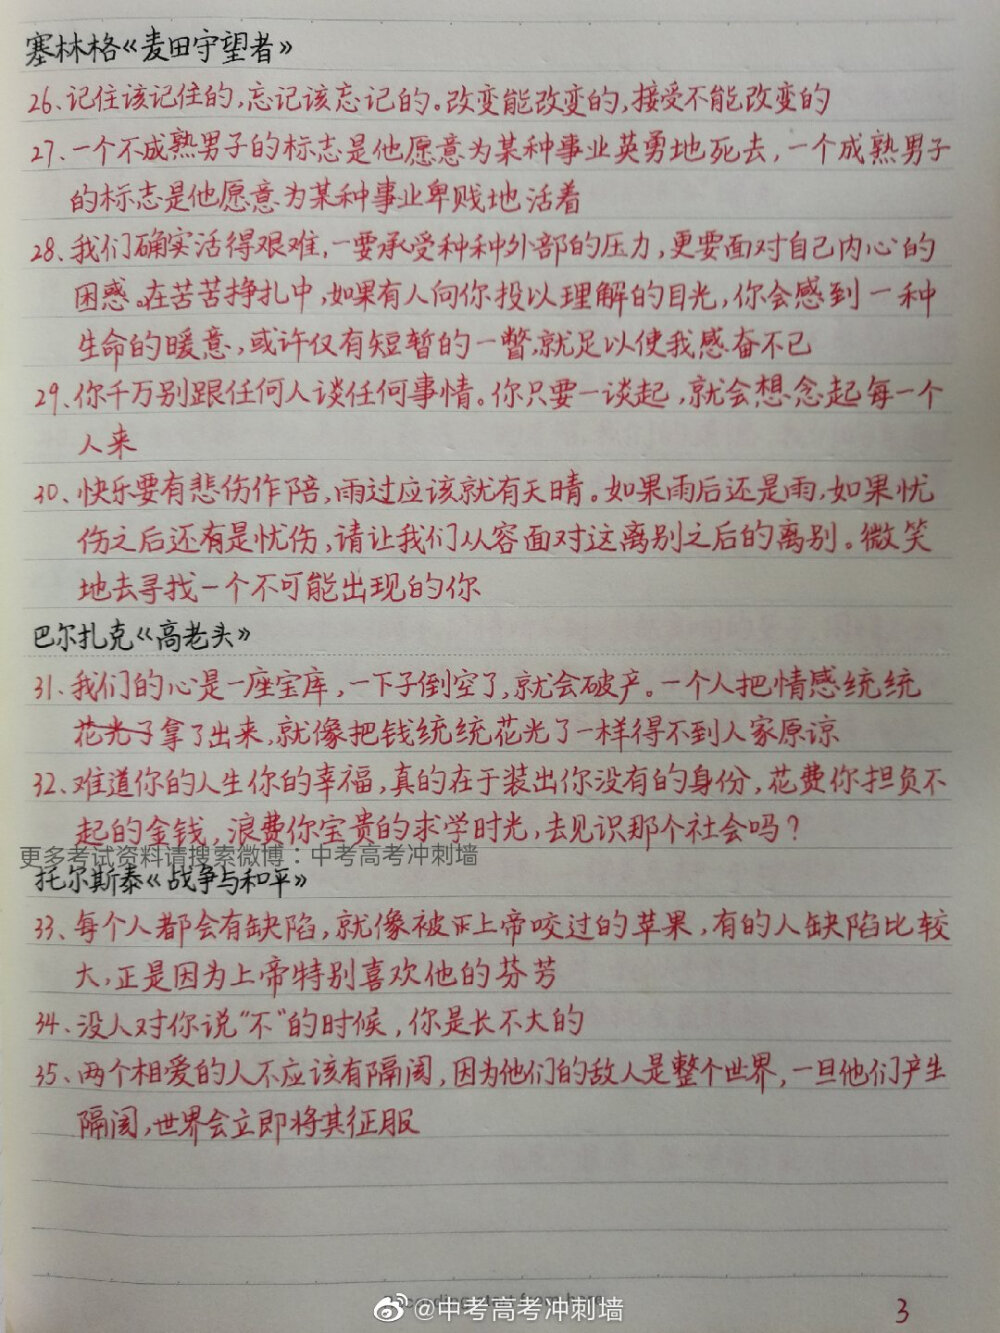 塞林格《麦田守望者》
26、记住该记住的,忘记该忘记的。改变能改变的,接受不能改变的
27、一个不成熟男子的标志是他愿意为某种事业英勇地死去,一个成熟男子
的标志是他愿意为某种事业卑贱地活着
28、我们确实活得艰难,一要承受种种外部的压力,更要面对自己内心的
困惑。在苦苦挣扎中,如果有人向你投以理解的目光,你会感到一种
生命的暖意,或许仅有短暂的一瞥,就足以使我感奋不已
29、你千万别跟任何人谈任何事情。你只要一谈起,就会想念起每一个
人来
30、快乐要有悲伤作陪,雨过应该就有天晴。如果雨后还是雨,如果忧
伤之后还有是忧伤,请让我们从容面对这离别之后的离别。微笑
地去寻找一个不可能出现的你
巴尔扎克《高老头》
31、我们的心是一座宝库,一下子倒空了,就会破产。一个人把情感统统
花光了拿了出来,就像把钱统统花光了一样得不到人家原谅
32、难道你的人生你的幸福,真的在于装出你没有的身份,花费你担负不
起的金钱,浪费你宝贵的求学时光,去见识那个社会吗?
更多考试资料请搜索微博:中考高考冲刺墙
托尔斯泰《战争与和平》
33、每个人都会有缺陷,就像被上帝咬过的苹果,有的人缺陷比较
大,正是因为上帝特别喜欢他的芬芳
34、没人对你说"不"的时候,你是长不大的
35、两个相爱的人不应该有隔阂,因为他们的敌人是整个世界,一旦他们产生
隔阂,世界会立即将其征服
@中考高考冲刺墙
3